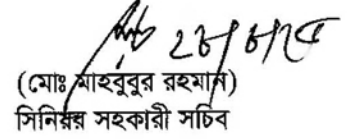 (মোঃ মাহবুবুর রহমান)
সিনিয়র সহকারী সচিব